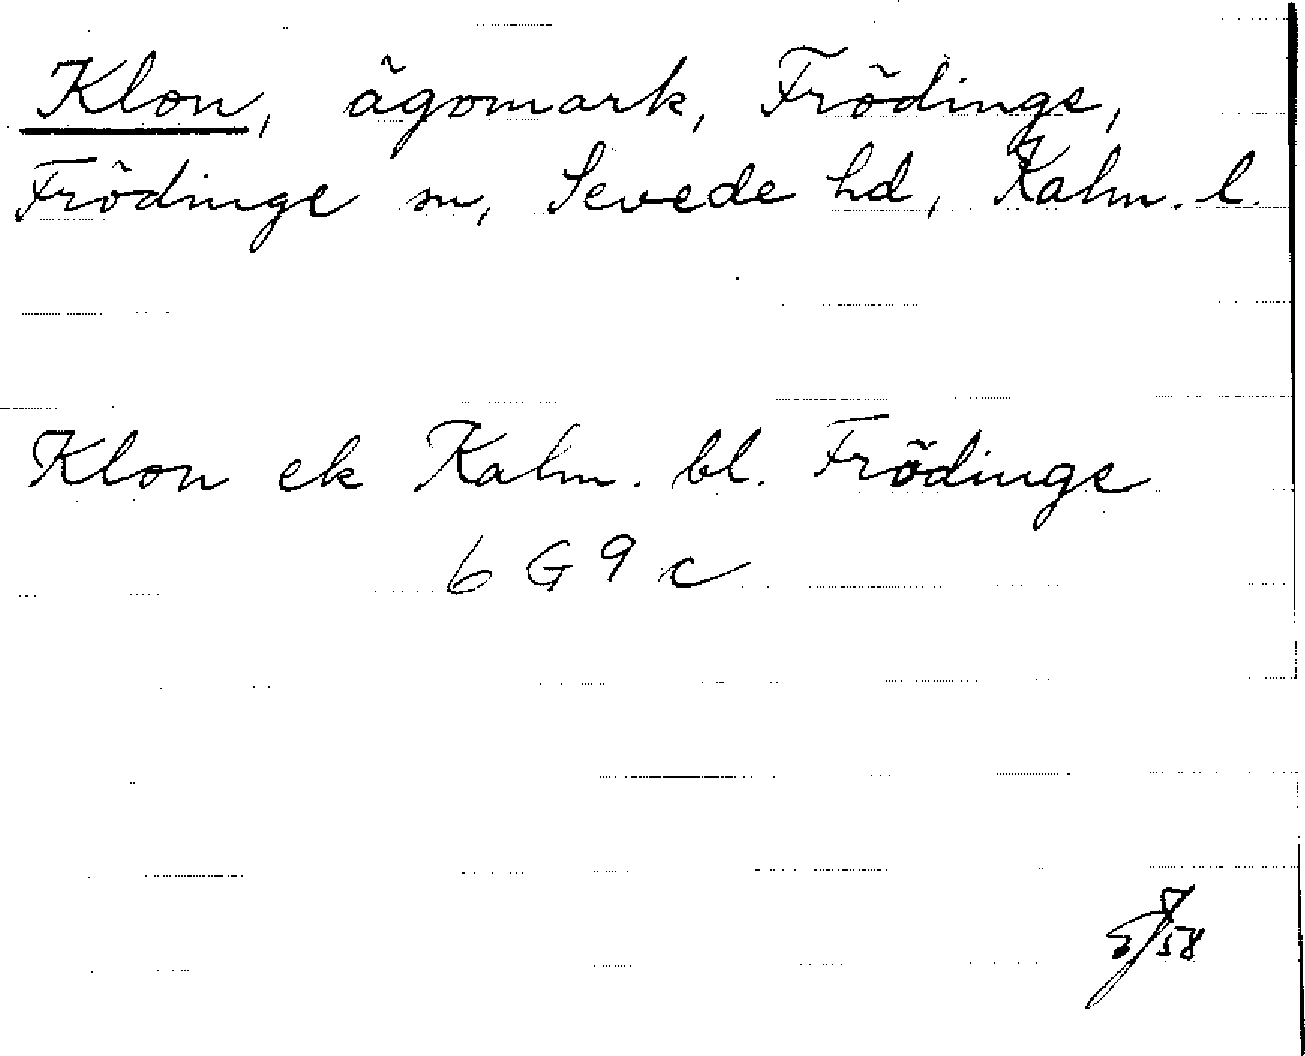 Klon, ägomark, Frödinge,
Frödinge sn, Sevede hd, Kalm. l.
Klon ek Kalm. bl. Frödinge
6 G 9 c